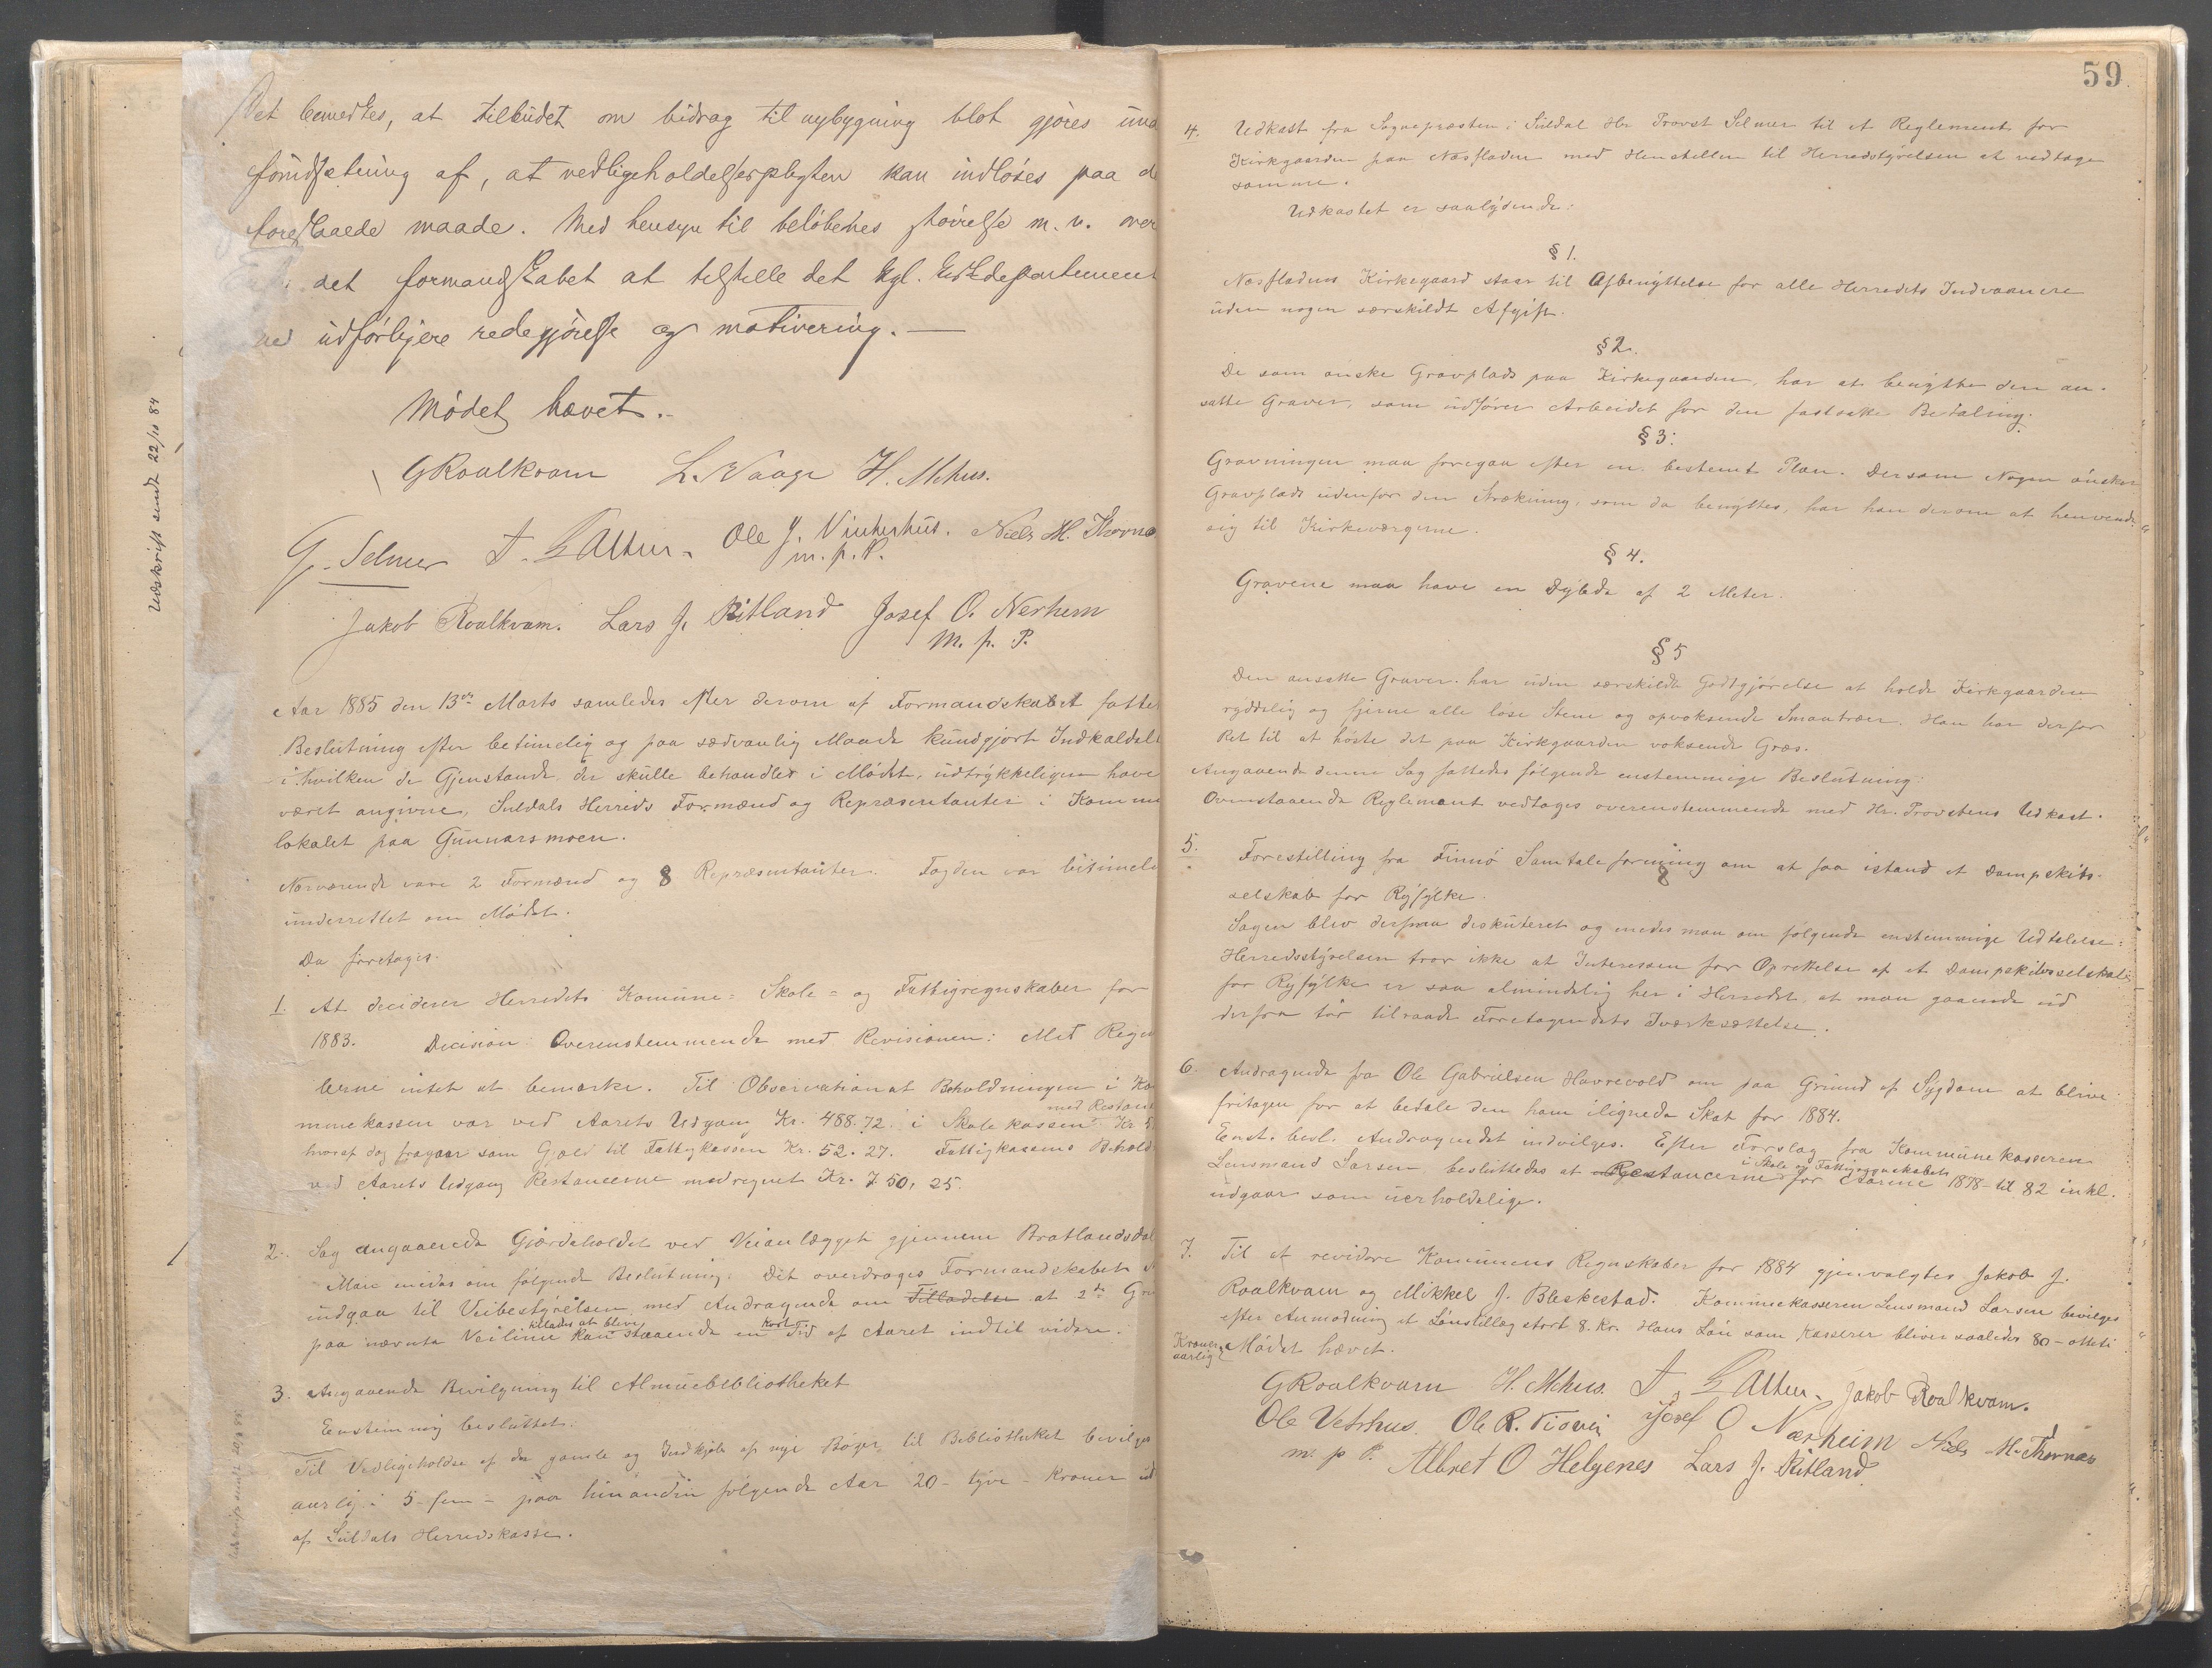 Det bemerkes, at tilbudet om bidrag til nybygning blot gjøres und
forudsetning af, at vedligeholdelsespligten kan indløses paa de
foreslaaede maade. Med hensyn til beløbenes størrelse m. v. over
det formandskabet at tilstille det kgl. Kirkedepartement
udførligere redegjørelse og motivering. —
Mødet hævet.
GRoalkvam L. Vaage H. Mehus.
G. Selmer T. Ole J. Vinterhus. Niels H. Thornæ
m. p. P.
Jakob Roalkvam. Lars J. Ritland Josef O. Nerhem
M. p. P.
Udskrift sendt 22/10 84
Aar 1885 den 13de Marts samledes efter derom af Formandskabet fattet
Beslutning efter betimelig og paa sædvanlig Maade kundgjort Indkaldel
i hvilken de Gjenstande, der skulle behandles i Mødet, udtrykkeligen have
været angivne, Suldals Herreds Formænd og Repræsentanter i Kommu
lokalet paa Gunnarsmoen.
Nærværende vare 2 Formænd og 8 Repræsentanter. Fogden var betimele
underrettet om Mødet.
Da foretoges.
1. At deciderer Herredets Komune= Skole= og Fattigregnskaber for
1883. Decision: Overenstemmende med Revisionen: Med Regn
berne intet at bemærke. Til Observation at Beholdningen i Ko
med Restanc
munekassen var ved Aarets Udgang Kr. 488.72. i Skolekassen Kr 5
hvoraf dog fragaar som Gjæld til Fattigkassen Kr. 52.27. Fattigkassens Behold
ved Aarets Udgang Restancerne medregnet Kr. 750,25.
2. Sag angaaende Gjærdeholdet ved Veianlægget gjennem Bratlandsdal
Man enedes om følgende Beslutning: Det overdrages Formandskabet
indgaa til Veibestyrelsen med Andragende om Tilladelse at 2de Gr
tillades at blive kort
paa nævnte Veilinie kan staaende en Tid af Aaret indtil videre.
3. Angaaende Bevilgning til Almuebibliotheket
Enstemmig besluttet:
Til Vedligeholdse af de gamle og Indkjøb af nye Bøger til Bibliotheket bevilges
aarlig i 5 - fem - paa hinanden følgende Aar 20 - tyve - Kroner
af Suldals Herredskasse.
59
4. Udkast fra Sognepræsten i Suldal Hr Provst Selmer til et Reglement for
Kirkgaarden paa Næsfladen med Henstillen til Herredstyrelsen at vedtage
samme.
Udkastet er saalydende:
§ 1.
Næsfladens Kirkegaard staar til Afbenyttelse for alle Herredets Indvaanere
uden nogen særskildt Afgift.
§ 2.
De som ønske Gravplads paa Kirkegaarden, har at benytte den an-
satte Graver, som udfører Arbeidet for den fastsatte Betaling.
§ 3:
Gravningen maa foregaa efter en bestemt Plan. Dersom Nogen ønsker
Gravplads udenfor den Strækning, som da benyttes, har han derom at henvende
sig til Kirkeværgerne.
§ 4.
Gravene maa have en Dybde af 2 Meter.
§ 5
Den ansatte Graver har uden særskildt Godtgjørelse at holde Kirkgaarden
ryddelig og fjerne alle løse Stene og opvoksende Smaatræer. Han har derfor
Ret til at høste det paa Kirkgaarden voksende Græs.
Angaaende denne Sag fattedes følgende enstemmige Beslutning:
Ovenstaaende Reglement vedtages overenstemmende med Hr. Provstens Udkast.
5. Forestilling fra Finnø Samtaleforening om at faa istand et Dampskibs-
selskab for Ryfylke.
Sagen blev derpaa diskuteret og enedes man om følgende enstemmige Udtalelse:
Herredsstyrelsen tror ikke at Interessen for Oprettelse af et Dampskibsselskab
for Ryfylke er saa almindelig her i Herredet, at man gaaende ud
derfra tør tilraade Foretagendets Iværksættelse.
6. Andragende fra Ole Gabrielsen Havrevold om paa Grund af Sygdom at blive
fritagen for at betale den ham ilignede Skat for 1884.
Enst. besl. Andragendet indvilges. Efter Forslag fra Kommunekasseren
i Skole og Fattigregnskabet
Lensmand Larsen, besluttedes at Restancerne for Aarene 1878 - til 82 inkl.
udgaar som uerholdelige.
7. Til at revidere Kommunens Regnskaber for 1884 gjenvalgtes Jakob J.
Roalkvam og Mikkel J. Bleskestad. Kommunekasseren Lensmand Larsen bevilges
efter Anmodning et Lønstillæg stort 8. Kr. Hans Løn som Kasserer bliver saaledes 80 - otteti
Kroner aarlig
Mødet hævet.
GRoalkvam H. Mehus. T. Jakob Roalkvam.
Ole Vetrhus. Ole R. Josef O Nærheim Niels H. Thornæs
m. p P. Albret O Helgenes Lars J. Ritland